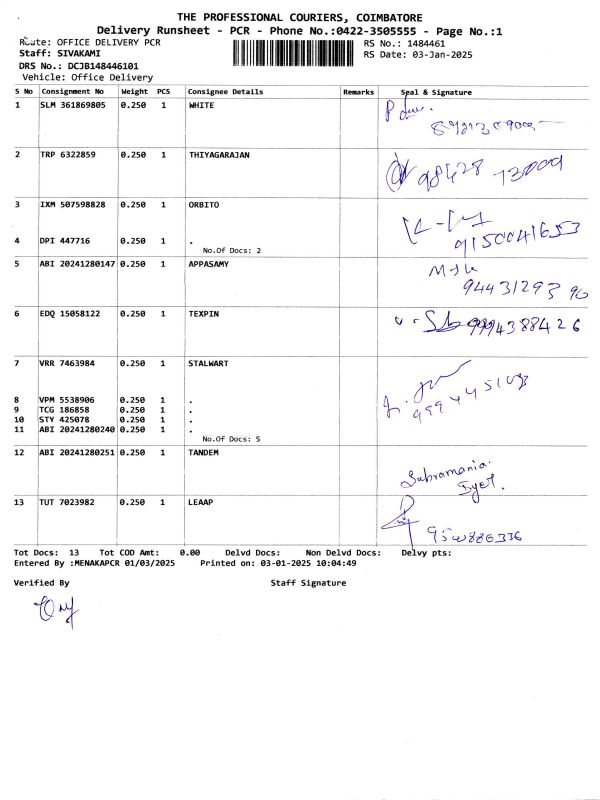 THE PROFESSIONAL COURIERS, COIMBATORE
Delivery Runsheet - PCR - Phone No.:0422-3505555 - Page No.:1
Route: OFFICE DELIVERY PCR
RS No.: 1484461
Staff: SIVAKAMI
RS Date: 03-Jan-2025
DRS No.: DCJB148446101
Vehicle: Office Delivery
S No Consignment No Weight PCS Consignee Details Remarks Seal & Signature
1 SLM 361869805 0.250 1 WHITE
2 TRP 6322859 0.250 1 THIYAGARAJAN
98428 73009
3 IXM 507598828 0.250 1 ORBITO
4 DPI 447716 0.250 1 .
9150041653
No.Of Docs: 2
5 ABI 20241280147 0.250 1 APPASAMY
94431293 90
6 EDQ 15058122 0.250 1 TEXPIN
9994388426
7 VRR 7463984 0.250 1 STALWART
8 VPM 5538906 0.250 1 .
9 TCG 186858 0.250 1 .
10 STY 425078 0.250 1 .
11 ABI 20241280240 0.250 1 .
No.Of Docs: 5
12 ABI 20241280251 0.250 1 TANDEM
Subramania.
Iyer.
13 TUT 7023982 0.250 1 LEAAP
Tot Docs: 13 Tot COD Amt: 0.00 Delvd Docs: Non Delvd Docs: Delvy pts:
Entered By :MENAKAPCR 01/03/2025 Printed on: 03-01-2025 10:04:49
Verified By Staff Signature